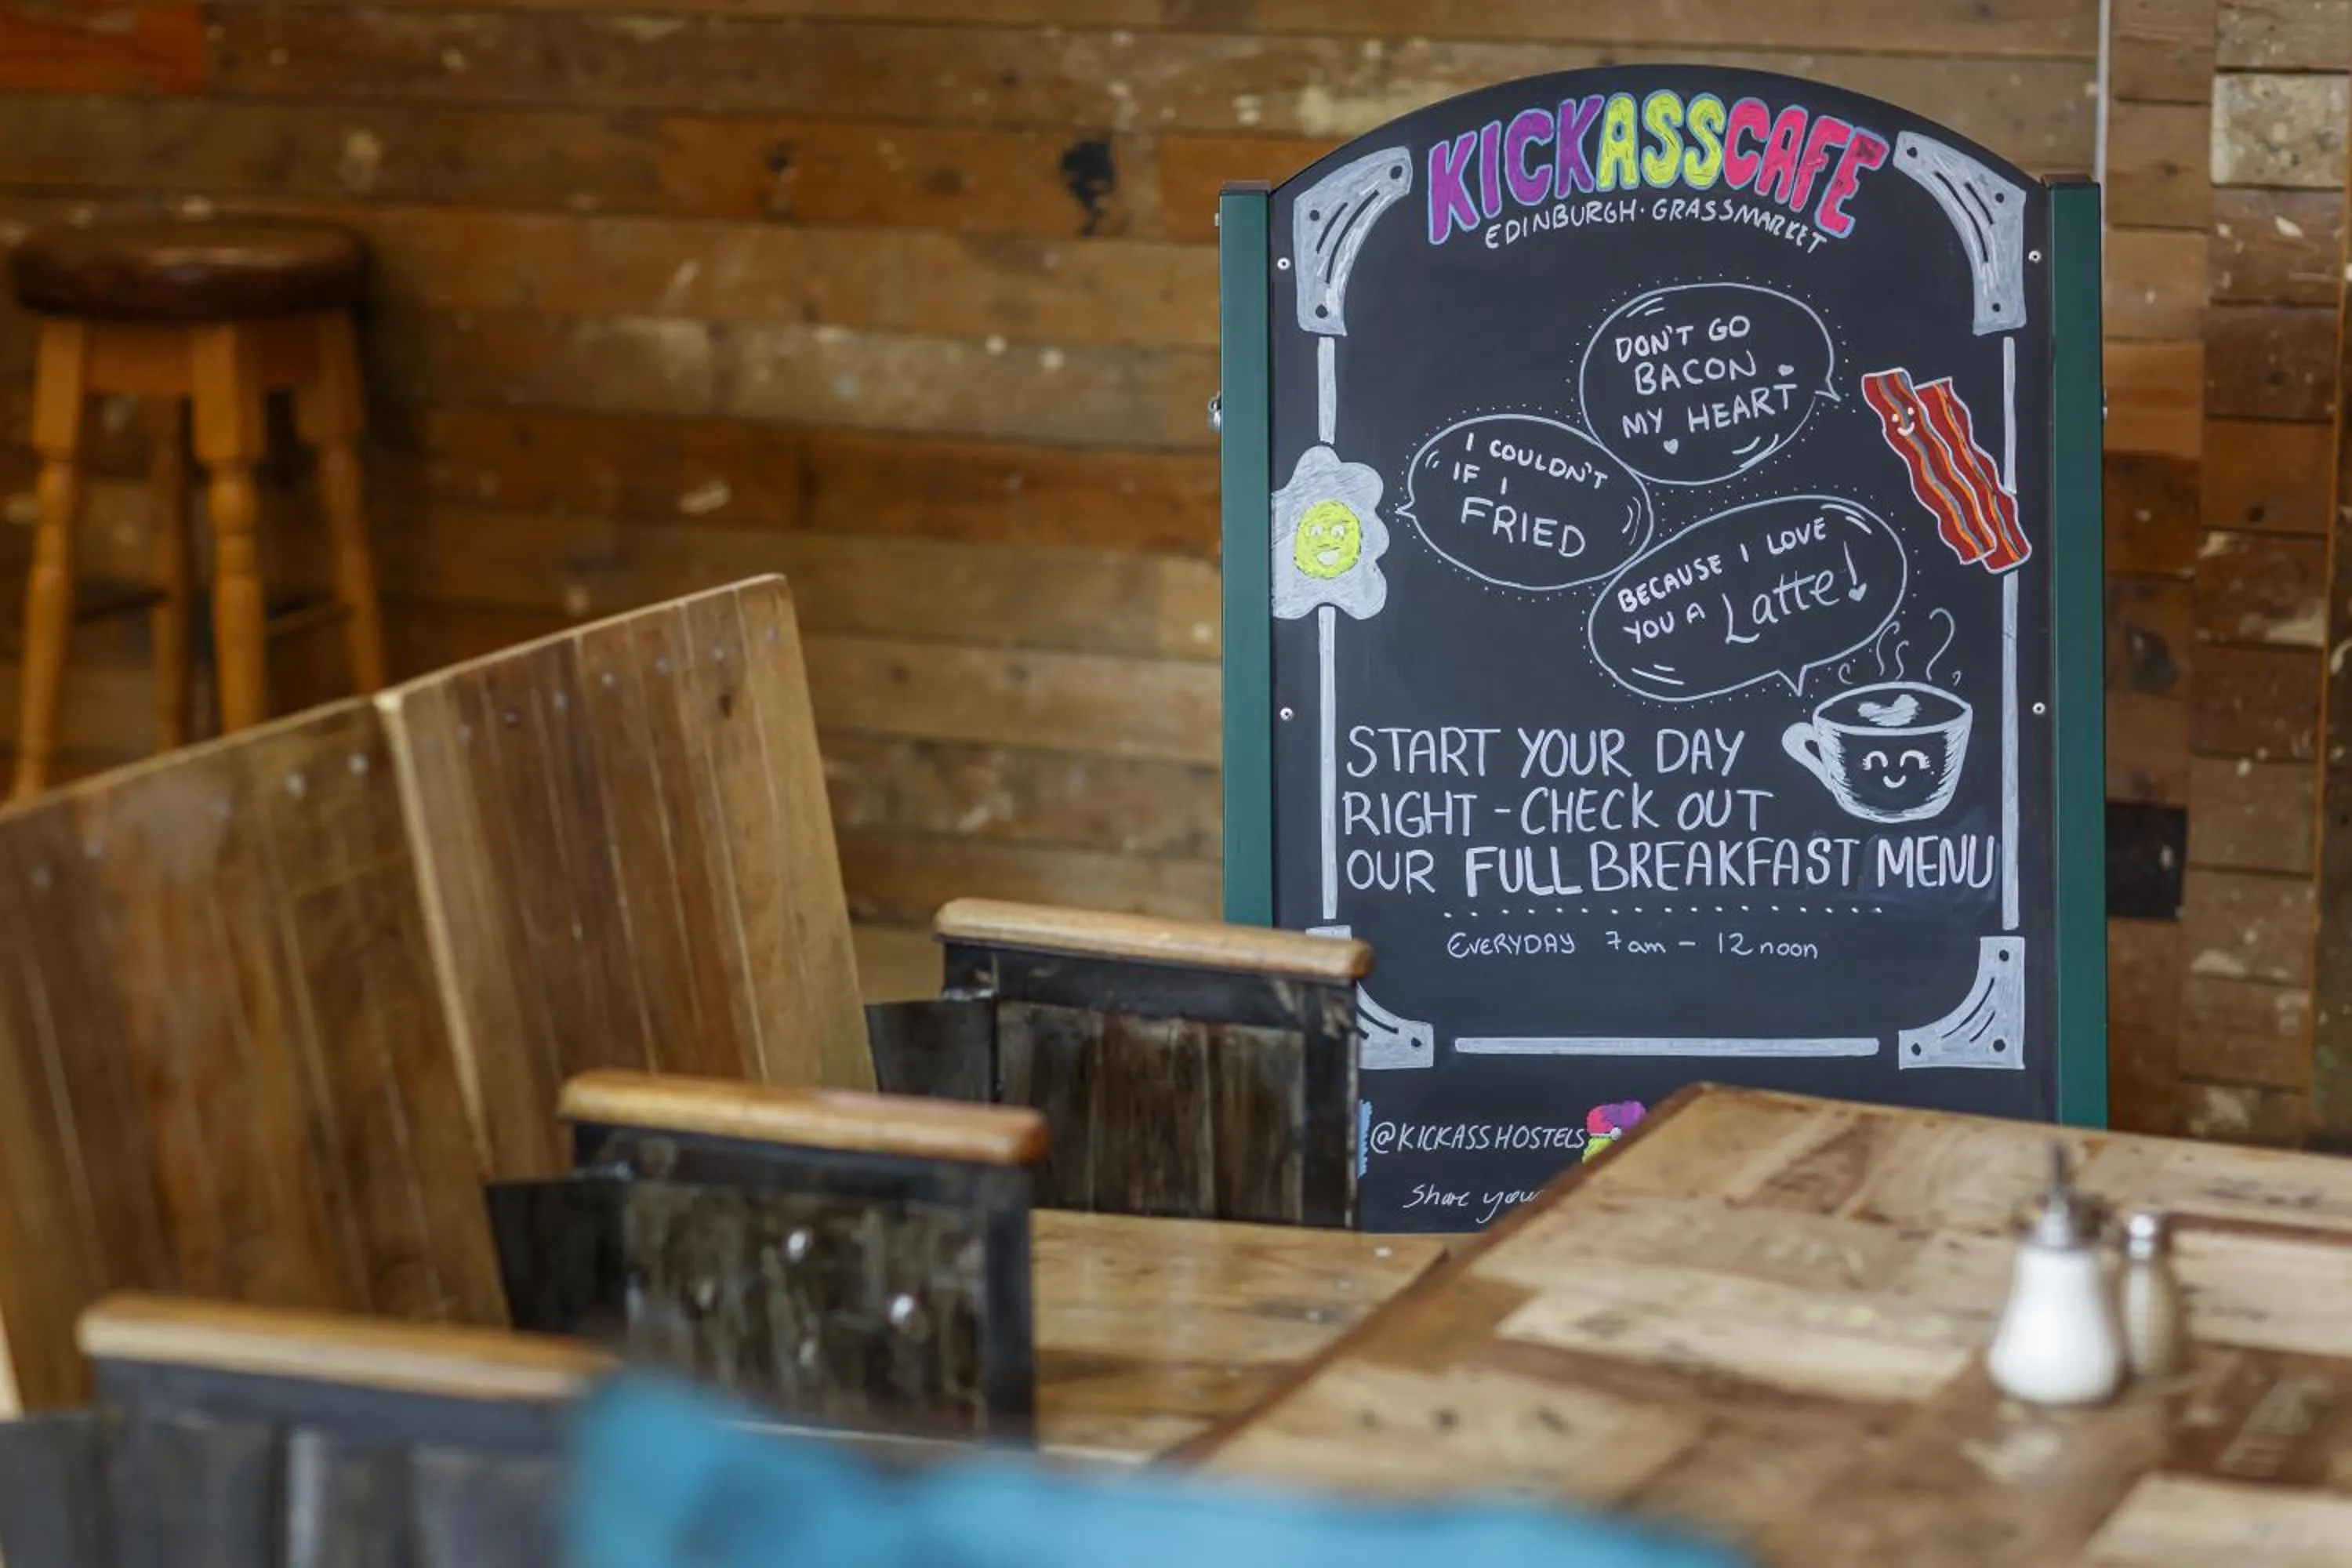 KICKASSCAFE
EDINBURGH · GRASSMARKET
DON'T GO
BACON
MY HEART
I COULDN'T
IF I
FRIED
BECAUSE I LOVE
YOU A Latte!
START YOUR DAY
RIGHT - CHECK OUT
OUR FULL BREAKFAST MENU
EVERYDAY 7am - 12noon
@KICKASSHOSTELS
Share your